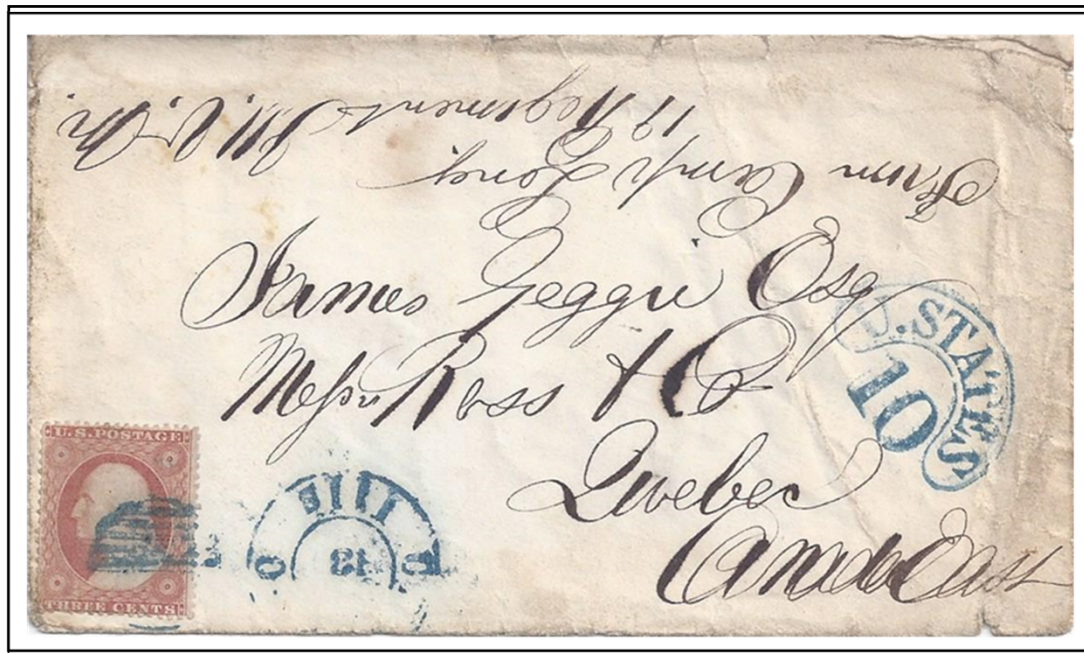 From Camp Long
19 Regiment Ill. V. M.
James Geggie Esq
Messrs Ross & Co
Quebec
Canada East
U. STATES
10
U.S. POSTAGE
THREE CENTS
13